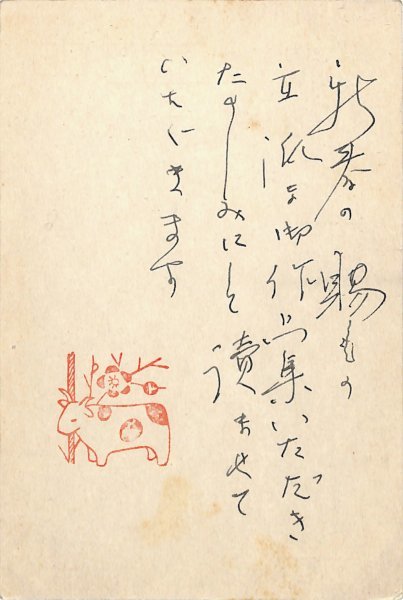 新春の賜もの
立派な御作品集いただき
たのしみにして読ませて
いただきます